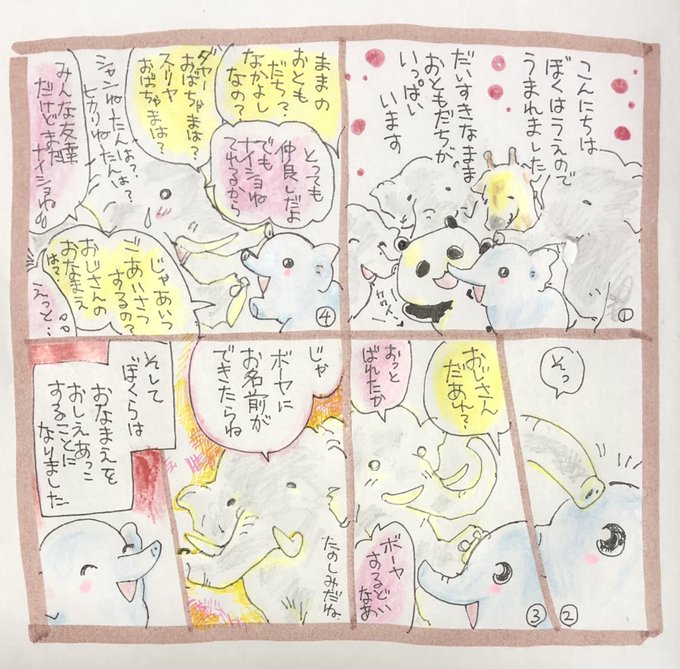 こんにちは
ぼくはうえので
うまれました
だいすきなまま
おともだちが
いっぱい
います
①
そっ
②
おじさん
だあれ?
おっと
ばれたか
ボーヤ
するどい
なあ
③
ままの
おとも
だち?
なかよし
なの?
とっても
仲良しだよ
でも
ナイショね
てれるから
ダヤー
おばちゃまは?
スリヤ
おばちゃまは?
シャンねーたんは?
ヒカリねーたんは?
みんな友達
だけどまだ
ナイショね
じゃあいつ
ごあいさつ
するの?
おじさんの
おなまえ
は?
えっと…
④
じゃ
ボーヤに
お名前が
できたらね
たのしみだね
そして
ぼくらは
おなまえを
おしえあっこ
することに
なりました